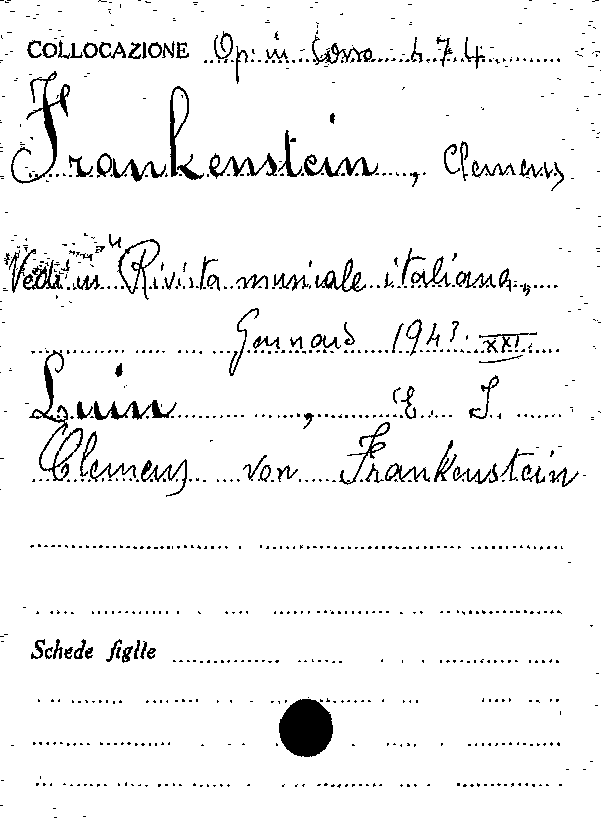 COLLOCAZIONE Op. in Corso 474
Frankenstein, Clemens
Vedi in "Rivista musicale italiana„
Gennaio 1943. XXI.
Luin, E. I.
Clemens von Frankenstein
Schede figlie